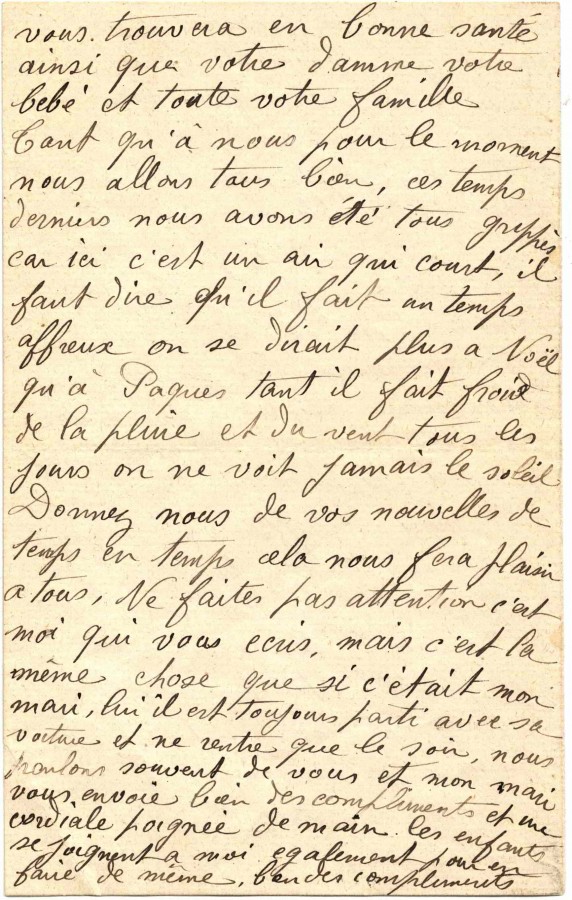 vous trouvera en bonne santé
ainsi que votre damme votre
bebé et toute votre famille
Tant qu'à nous pour le moment
nous allons tous bien, ces temps
derniers nous avons été tous grippés
car ici c'est un air qui court, il
faut dire qu'il fait un temps
affreux on se dirait plus a Noël
qu'à Paques tant il fait froid
de la pluie et du vent tous les
jours on ne voit jamais le soleil
Donnez nous de vos nouvelles de
temps en temps cela nous fera plaisir
a tous, Ne faites pas attention c'est
moi qui vous ecris, mais c'est la
même chose que si c'était mon
mari, lui il est toujours parti avec sa
voiture et ne rentre que le soir, nous
parlons souvent de vous et mon mari
vous envoie bien des compliments et une
cordiale poignée de main les enfants
se joignent a moi egalement pour en
faire de même, bien des compliments